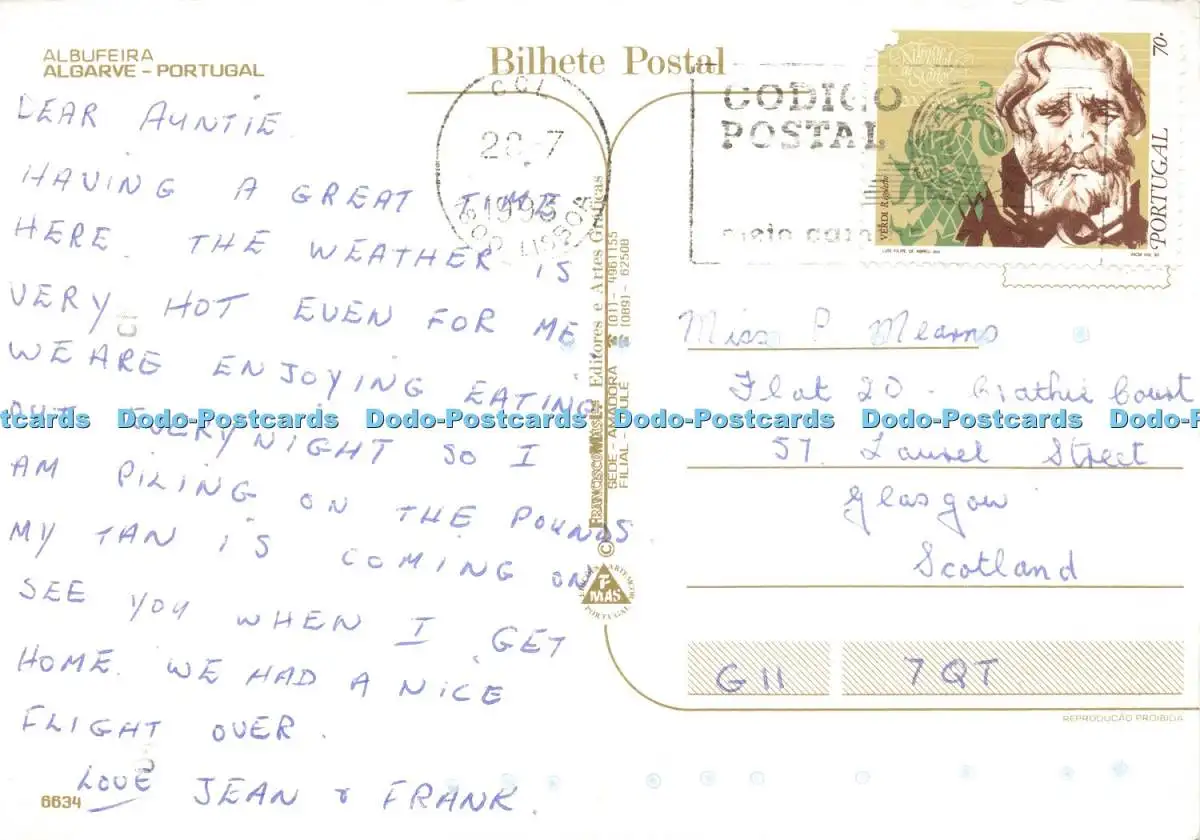 ALBUFEIRA
ALGARVE - PORTUGAL
Bilhete Postal
DEAR AUNTIE.
HAVING A GREAT TIME
HERE. THE WEATHER IS
VERY HOT EVEN FOR ME
WE ARE ENJOYING EATING
OUT EVERY NIGHT SO I
AM PILING ON THE POUNDS
MY TAN IS COMING ON
SEE YOU WHEN I GET
HOME. WE HAD A NICE
FLIGHT OVER.
LOVE JEAN & FRANK.
6634
CCL
28-7
1993
LISBOA
CODIGO
POSTAL
meio cam
70-
PORTUGAL
VERDI Rigoletto
© FRANCISCO MAS, Lda Editores e Artes Gráficas
SEDE - AMADORA ☎ (01) - 4961155
FILIAL - LOULÉ (089) - 62508
MAS
PORTUGAL
Miss P Mearns
Flat 20 - Crathie Court
57. Laurel Street
Glasgow
Scotland
G11 7QT
REPRODUÇÃO PROIBIDA
Dodo-Postcards Dodo-Postcards Dodo-Postcards Dodo-Postcards